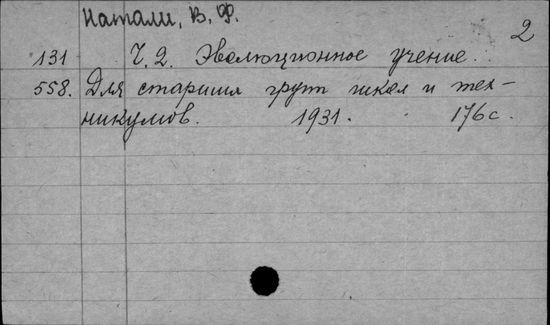 Натали, В. Ф.
2
131 Ч. 2. Эволюционное учение.
558. Для старших групп школ и тех-
никумов. 1931. 176 с.